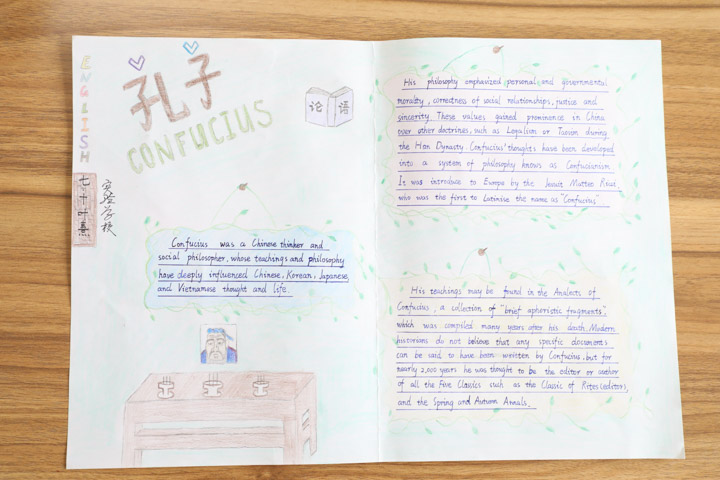 ENGLISH
孔子
CONFUCIUS
论语
实验学校
Confucius was a Chinese thinker and
social philosopher, whose teachings and philosophy
have deeply influenced Chinese, Korean, Japanese,
and Vietnamese thought and life.
His philosophy emphasized personal and governmental
morality, correctness of social relationships, justice and
sincerity. These values gained prominence in China
over other doctrines, such as Legalism or Taoism during
the Han Dynasty. Confucius' thoughts have been developed
into a system of philosophy known as Confucianism.
It was introduce to Europe by the Jesuit Matteo Ricci,
who was the first to Latinise the name as "Confucius".
His teachings may be found in the Analects of
Confucius, a collection of "brief aphoristic fragments",
which was compiled many years after his death. Modern
historians do not believe that any specific documents
can be said to have been written by Confucius, but for
nearly 2,000 years he was thought to be the editor or author
of all the Five Classics such as the Classic of Rites (editor),
and the Spring and Autumn Annals.